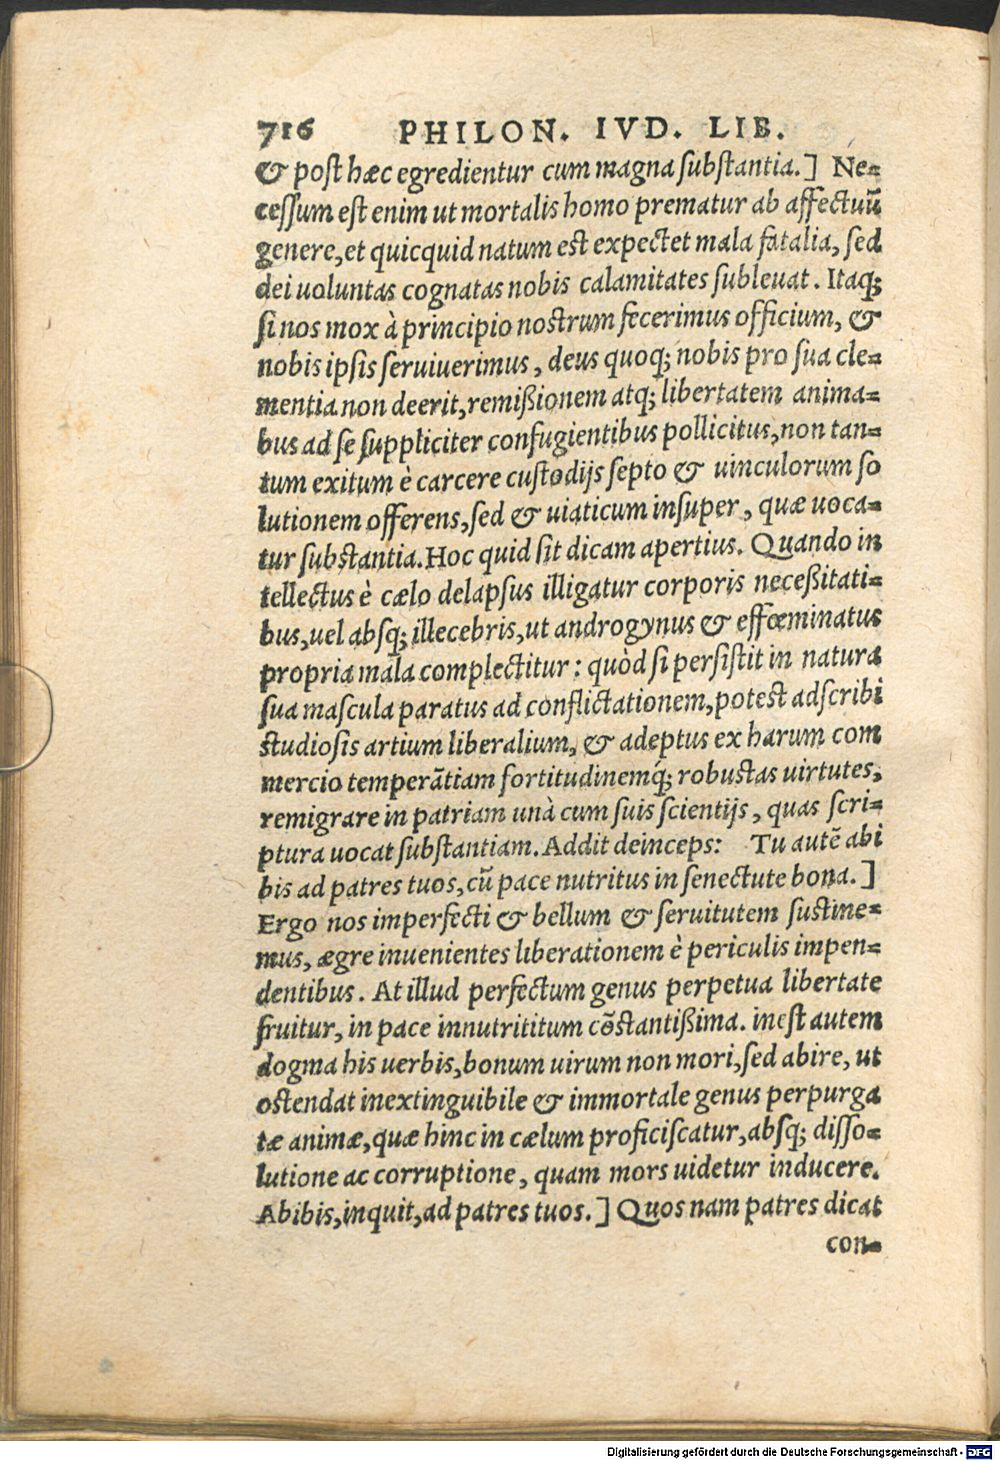 716 PHILON. IVD. LIB.
& post hæc egredientur cum magna substantia.] Ne=
cessum est enim ut mortalis homo prematur ab affectuū
genere, et quicquid natum est expectet mala fatalia, sed
dei uoluntas cognatas nobis calamitates subleuat. Itaq;
si nos mox à principio nostrum fecerimus officium, &
nobis ipsis seruiuerimus, deus quoq; nobis pro sua cle=
mentia non deerit, remißionem atq; libertatem anima=
bus ad se suppliciter confugientibus pollicitus, non tan=
tum exitum è carcere custodijs septo & uinculorum so
lutionem offerens, sed & uiaticum insuper, quæ uoca=
tur substantia. Hoc quid sit dicam apertius. Quando in
tellectus è cælo delapsus illigatur corporis neceßitati=
bus, uel absq; illecebris, ut androgynus & effœminatus
propria mala complectitur: quòd si persistit in natura
sua mascula paratus ad conflictationem, potest adscribi
studiosis artium liberalium, & adeptus ex harum com
mercio temperātiam fortitudinemq́; robustas uirtutes,
remigrare in patriam unà cum suis scientijs, quas scri=
ptura uocat substantiam. Addit deinceps: Tu autē abi
bis ad patres tuos, cū pace nutritus in senectute bona.]
Ergo nos imperfecti & bellum & seruitutem sustine=
mus, ægre inuenientes liberationem è periculis impen=
dentibus. At illud perfectum genus perpetua libertate
fruitur, in pace innutrititum cōstantißima. inest autem
dogma his uerbis, bonum uirum non mori, sed abire, ut
ostendat inextinguibile & immortale genus perpurga
tæ animæ, quæ hinc in cælum proficiscatur, absq; disso=
lutione ac corruptione, quam mors uidetur inducere.
Abibis, inquit, ad patres tuos.] Quos nam patres dicat
con=
Digitalisierung gefördert durch die Deutsche Forschungsgemeinschaft - DFG